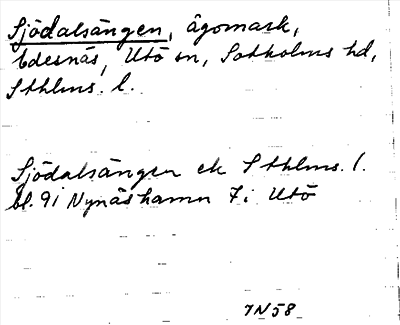 Sjödalsängen, ägomark,
Edesnäs, Utö sn, Sotholms hd,
Sthlms. l.
Sjödalsängen ek Sthlms. l.
bl. 91 Nynäshamn 7i Utö
7N58